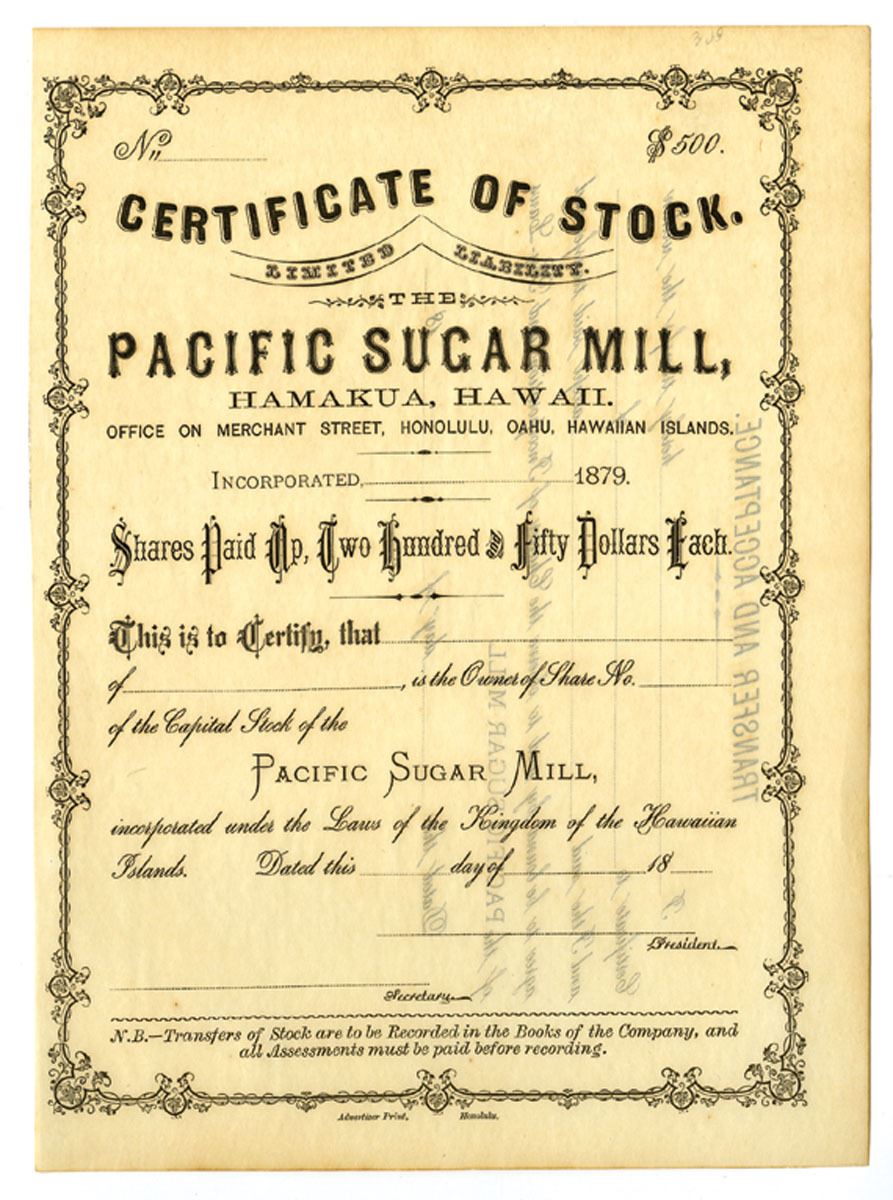 309
No. $500.
CERTIFICATE OF STOCK.
LIMITED LIABILITY.
THE
PACIFIC SUGAR MILL,
HAMAKUA, HAWAII.
OFFICE ON MERCHANT STREET, HONOLULU, OAHU, HAWAIIAN ISLANDS.
INCORPORATED, 1879.
Shares Paid Up, Two Hundred and Fifty Dollars Each.
This is to Certify, that
of , is the Owner of Share No.
of the Capital Stock of the
PACIFIC SUGAR MILL,
incorporated under the Laws of the Kingdom of the Hawaiian
Islands. Dated this day of 18
President.
Secretary.
N.B.—Transfers of Stock are to be Recorded in the Books of the Company, and
all Assessments must be paid before recording.
Advertiser Print, Honolulu.
TRANSFER AND ACCEPTANCE.
of the PACIFIC SUGAR MILL